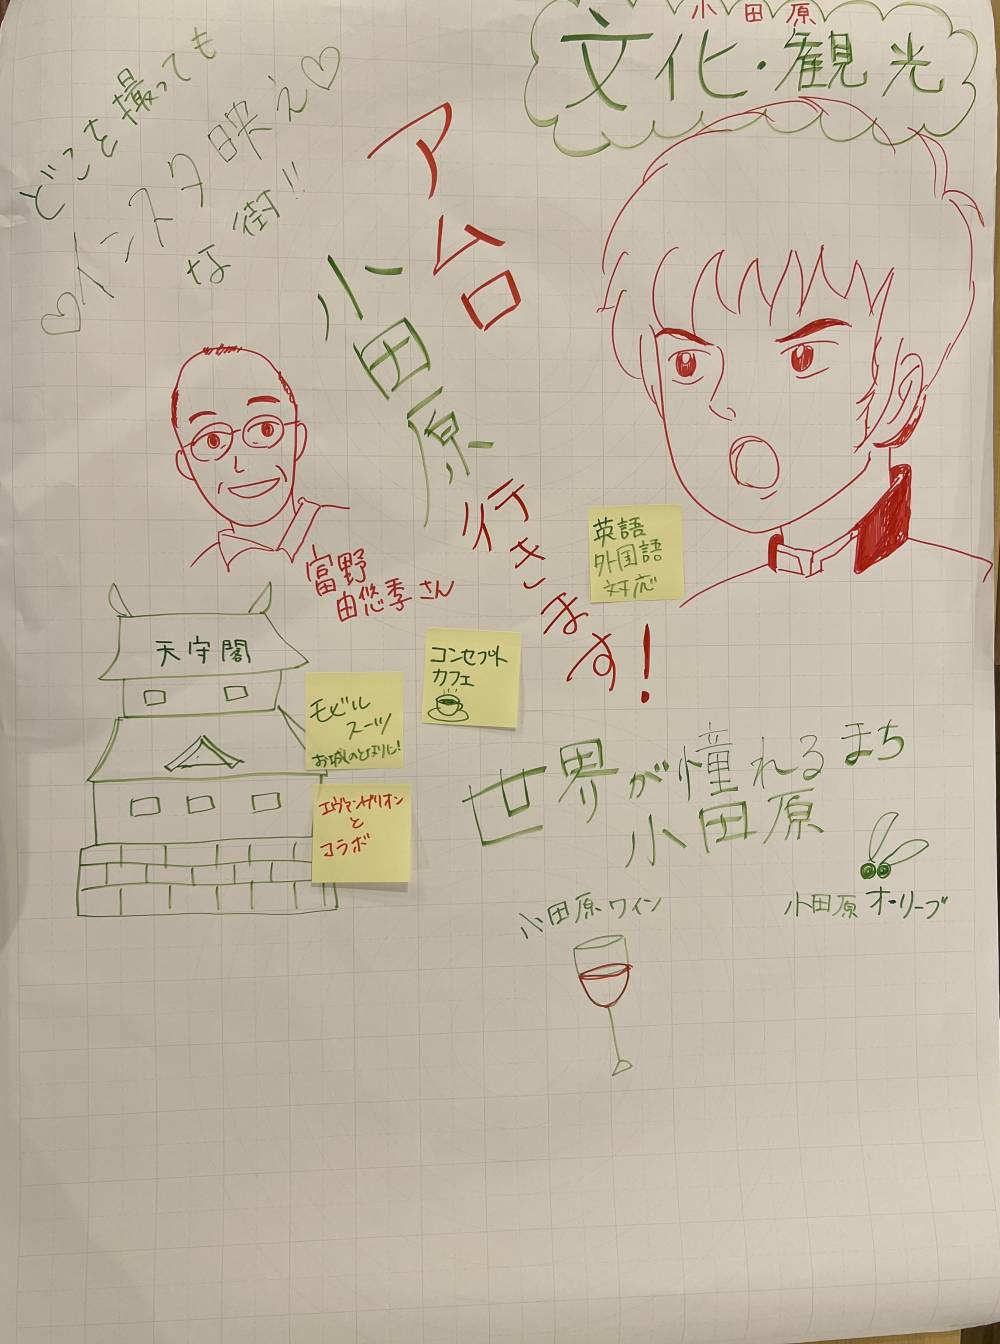 小田原
文化・観光
どこを撮っても
♡インスタ映え♡
な街!!
アムロ
小田原
行きます!
富野
由悠季さん
英語
外国語
対応
天守閣
コンセプト
カフェ
モビル
スーツ
お城のとなりに!
エヴァンゲリオン
と
コラボ
世界が憧れるまち
小田原
小田原ワイン
小田原オリーブ